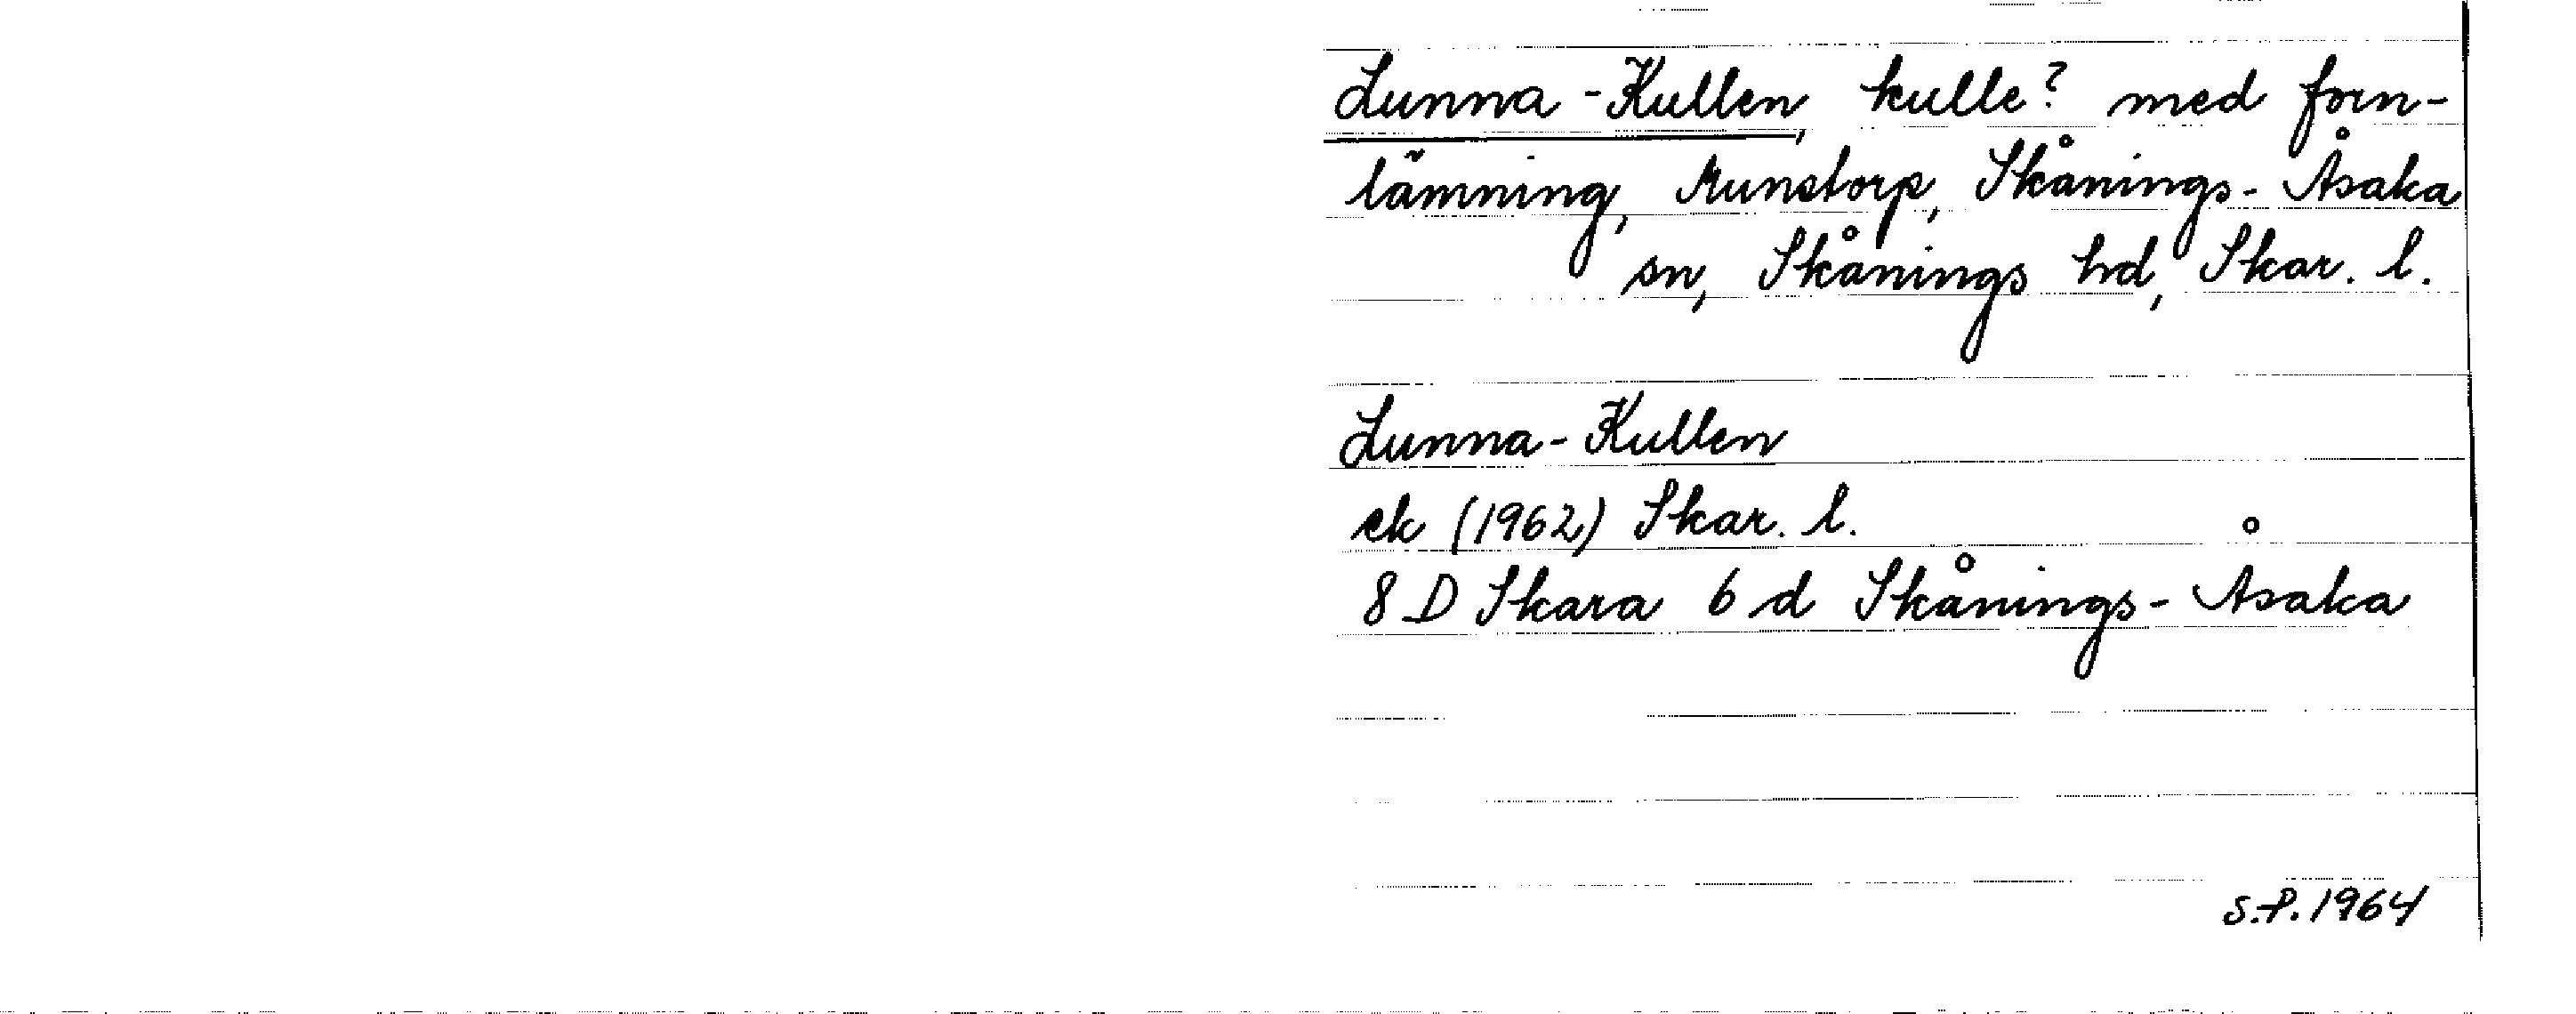 Lunna-Kullen, kulle? med forn-
lämning, Munstorp, Skånings-Åsaka
sn, Skånings hd, Skar. l.
Lunna-Kullen
ek (1962) Skar. l.
8 D Skara 6 d Skånings-Åsaka
S.P. 1964